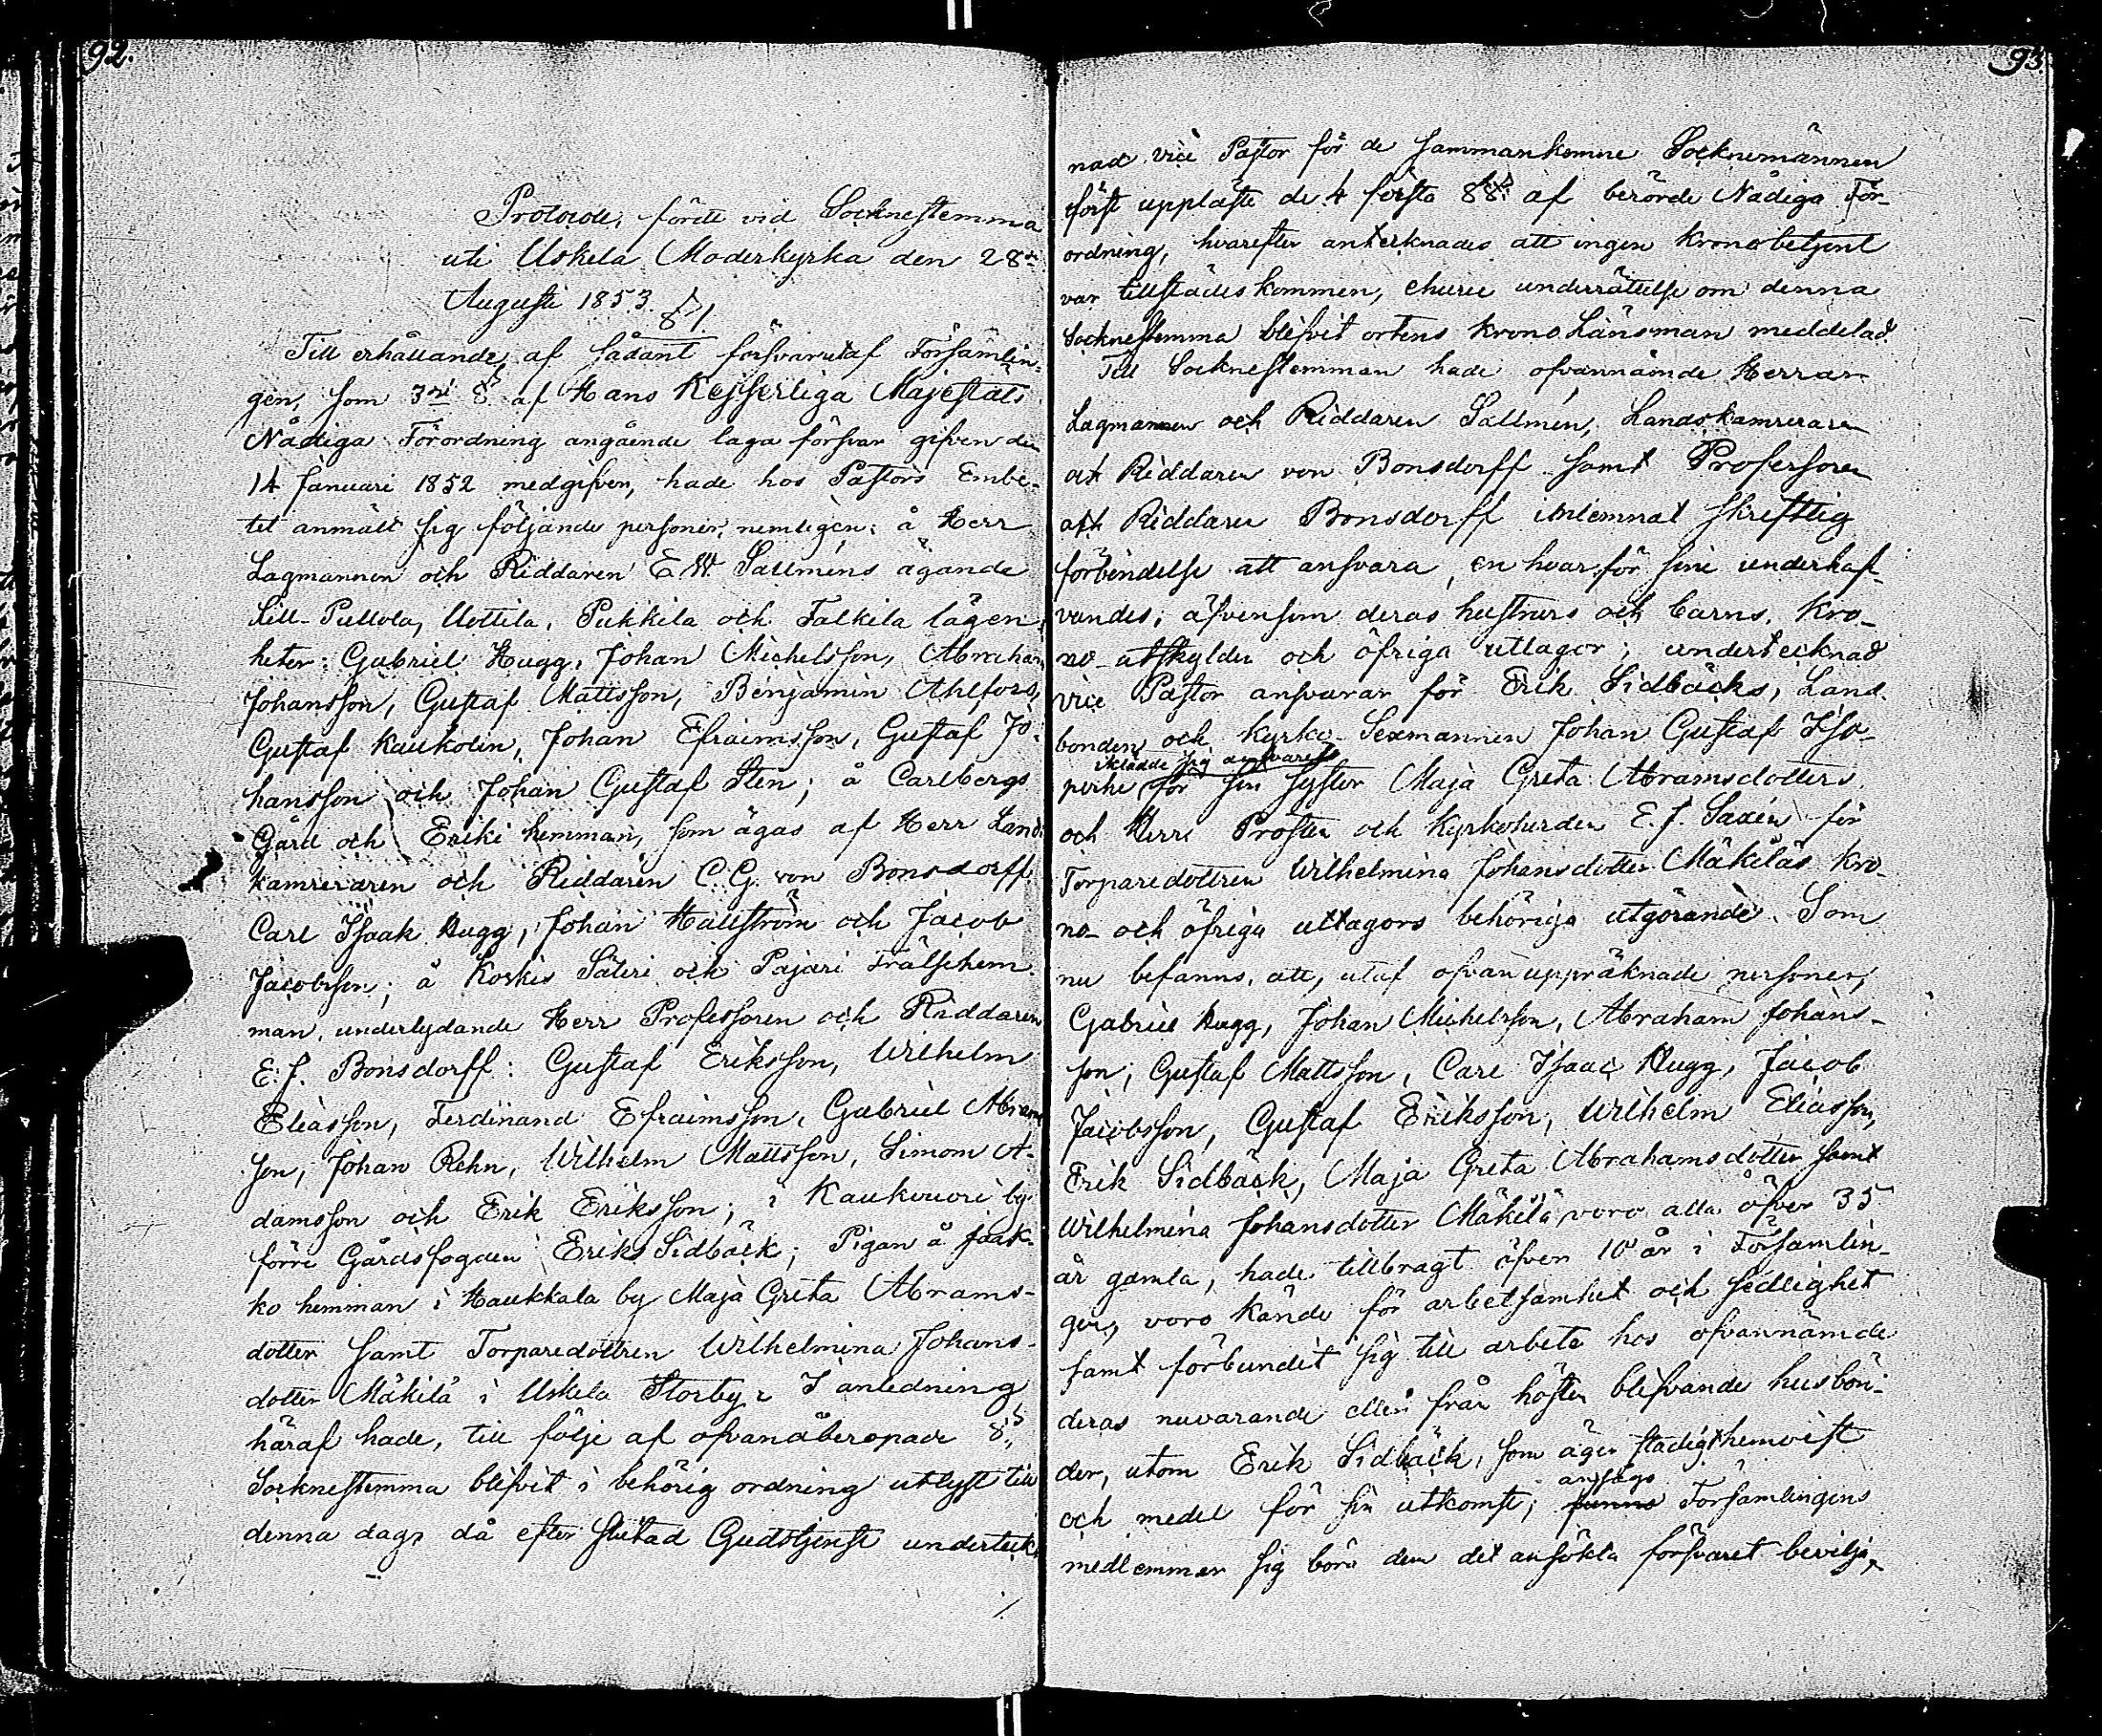 92.
Protocoll, fördt vid Socknestemma
uti Uskela Moderkyrka den 28de
Augusti 1853.
§ 1.
Till erhållande af sådant försvar utaf Församlin-
gen, som 3dje § af Hans Kejserliga Majestäts
Nådiga Förordning angående laga försvar gifven den
14 Januari 1852 medgifver, hade hos Pastors Embe-
tet anmält sig följande personer, nemligen: å Herr
Lagmannen och Riddaren E. W. Sallmens ägande
Lill-Pullola, Uottila, Pukkila och Talkila lägen-
heter: Gabriel Hugg, Johan Michelsson, Abraham
Johansson, Gustaf Mattsson, Benjamin Ahlfors,
Gustaf Kaukolin, Johan Efraimsson, Gustaf Jo-
hansson och Johan Gustaf Sten; å Carlbergs
Gård och Eriki hemman, som ägas af Herr Lands
kamreraren och Riddaren C. G. von Bonsdorff
Carl Isaak Hugg, Johan Hallström och Jacob
Jacobsson; å Koskis Säteri och Pajari Frälsehem-
man, underlydande Herr Professoren och Riddaren
E. J. Bonsdorff: Gustaf Eriksson, Wilhelm
Eliasson, Ferdinand Efraimsson, Gabriel Abrams
son, Johan Rehn, Wilhelm Mattsson, Simon A-
damsson och Erik Eriksson; i Kaukvuori by
förre Gårdsfogden Erik Sidbäck; Pigan å Jaak-
ko hemman i Haukkala by Maja Greta Abrams-
dotter samt Torparedottren Wilhelmina Johans-
dotter Mäkilä i Uskela Storby. I anledning
häraf hade, till följe af ofvanåberopade §,
Socknestemma blifvit i behörig ordning utlyst till
denna dag, då efter slutad Gudstjenst underteck-
93.
nad vice Pastor för de sammankomne Socknemännen
först uppläste de 4 första §§ af berörde Nådiga För-
ordning, hvarefter antecknades att ingen kronobetjent
var tillstädeskommen, ehuru underrättelse om denna
Socknestemma blifvit ortens krono Länsman meddelad.
Till Socknestemman hade ofvannämnde Herrar
Lagmannen och Riddaren Sallmén, Landskamreraren
och Riddaren von Bonsdorff samt Professoren
och Riddaren Bonsdorff inlemnat skriftlig
förbindelse att ansvara, en hvar för sine underhaf-
vandes, äfvensom deras hustrurs och barns, Kro-
no-utskylder och öfriga utlagor; undertecknad
vice Pastor ansvarar för Erik Sidbäcks, Land
bonden och Kyrko-Sexmannen Johan Gustaf Iso-
iklädde sig ansvaret
perhe för sin syster Maja Greta Abramsdotters
och Herr Prosten och Kyrkoherden E. J. Saxén för
Torparedottren Wilhelmina Johansdotter Mäkiläs kro-
no- och öfriga utlagors behöriga utgörande. Som
nu befanns, att, utaf ofvan uppräknade personer,
Gabriel Hugg, Johan Michelsson, Abraham Johans-
son, Gustaf Mattsson, Carl Isaac Hugg, Jacob
Jacobsson, Gustaf Eriksson, Wilhelm Eliasson,
Erik Sidbäck, Maja Greta Abrahamsdotter samt
Wilhelmina Johansdotter Mäkilä, voro alla öfver 35
år gamla, hade tillbragt öfver 10 år i Församlin-
gen, voro kände för arbetsamhet och sedlighet
samt förbundit sig till arbete hos ofvannämde
deras nuvarande eller från hösten blifvande husbön-
der, utom Erik Sidbäck, som äger stadigt hemvist
ansågo
och medel för sin utkomst; funno Församlingens
medlemmar sig böra dem det ansökta försvaret bevilja,